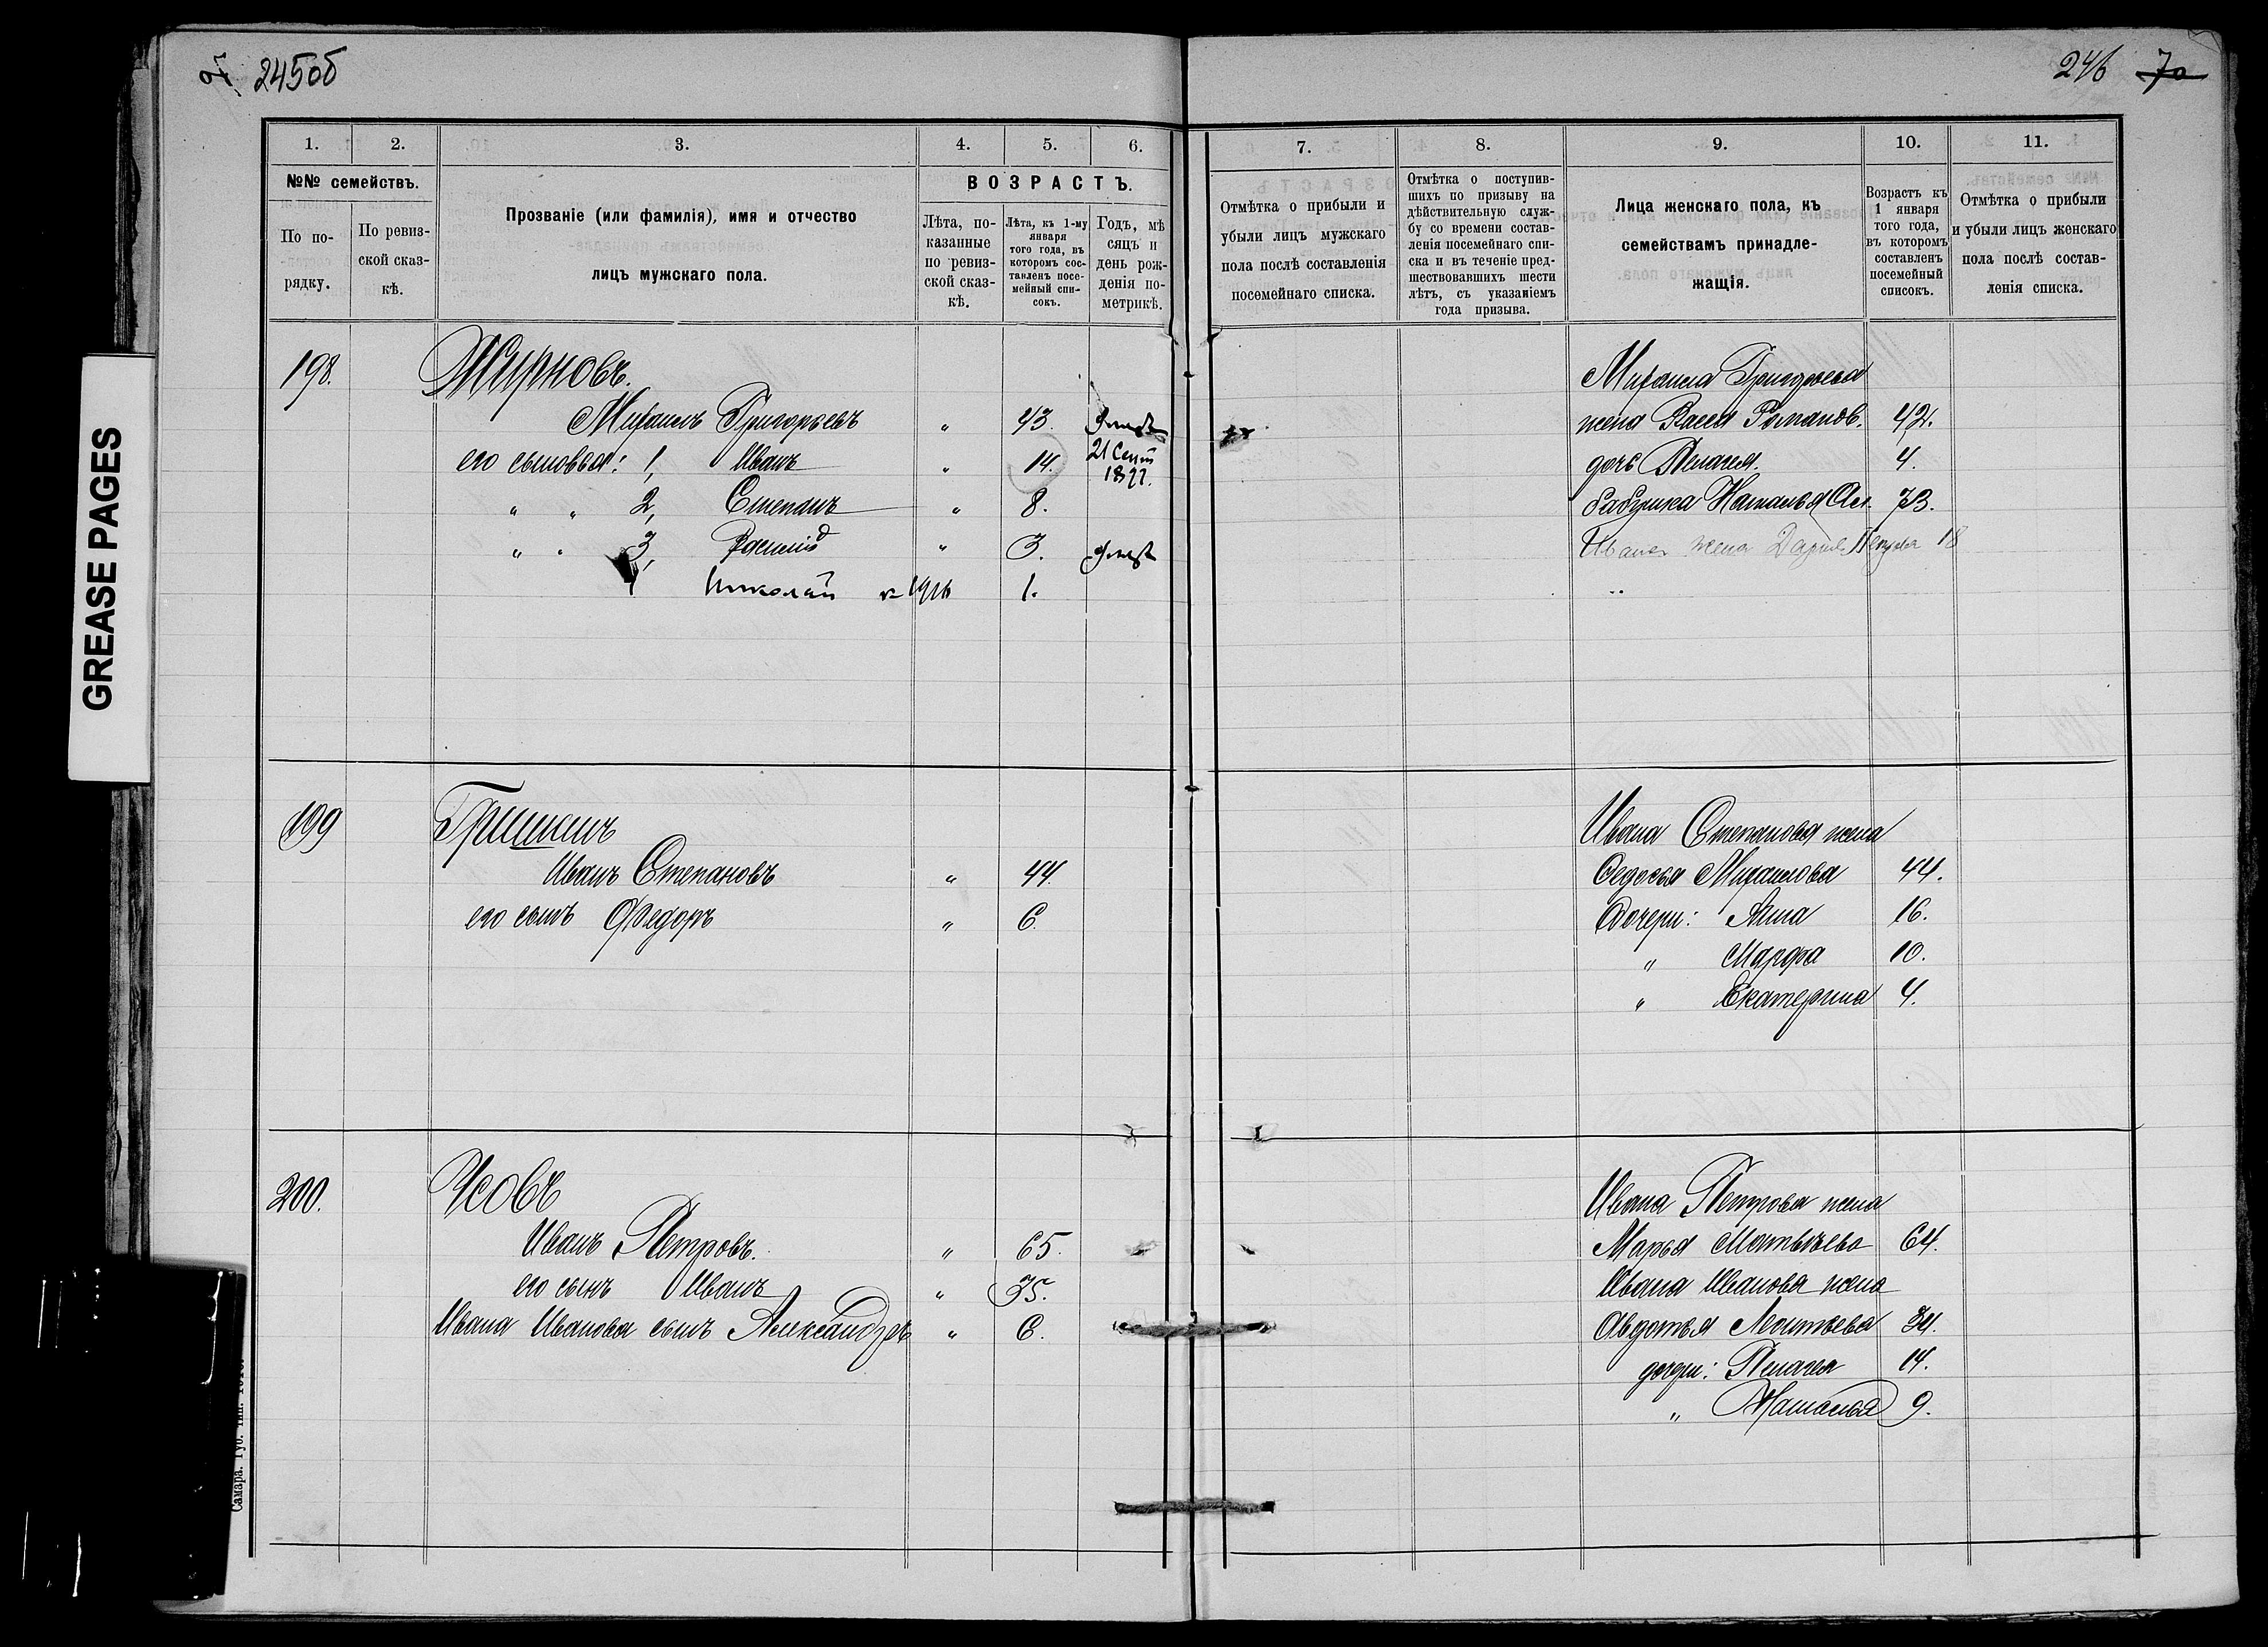 245об
246 70
GREASE PAGES
1. 2. 3. 4. 5. 6. 7. 8. 9. 10. 11.
№№ семействъ.
По порядку.
По ревизской сказкѣ.
Прозваніе (или фамилія), имя и отчество
лицъ мужскаго пола.
ВОЗРАСТЪ.
Лѣта, показанные по ревизской сказкѣ.
Лѣта, къ 1-му января того года, въ которомъ составленъ посемейный списокъ.
Годъ, мѣсяцъ и день рожденія по метрикѣ.
Отмѣтка о прибыли и убыли лицъ мужскаго пола послѣ составленія посемейнаго списка.
Отмѣтка о поступившихъ по призыву на дѣйствительную службу со времени составленія посемейнаго списка и въ теченіе предшествовавшихъ шести лѣтъ, съ указаніемъ года призыва.
Лица женскаго пола, къ семействамъ принадлежащія.
Возрастъ къ 1 января того года, въ которомъ составленъ посемейный списокъ.
Отмѣтка о прибыли и убыли лицъ женскаго пола послѣ составленія списка.
198. Жирновъ. Михаила Григорьева
Михаилъ Григорьевъ " 43. жена Васса Романов. 42.
его сыновья: 1, Иванъ " 14. 21 Сент 1897. дочь Пелагея. 4.
" " 2, Степанъ " 8. бабушка Наталья 73.
" " 3, " 3. Ивана жена Дарья Петрова 18
4 Николай 1916 1.
199 Гришинъ Ивана Степанова жена
Иванъ Степановъ " 44 Федосья Михаилова 44.
его сынъ Федоръ " 6. Дочери: Анна 16.
" Марфа 10.
" Екатерина 4.
200. Усовъ Ивана Петрова жена
Иванъ Петровъ. " 65. Марья Матвѣева 64.
его сынъ Иванъ " 35. Ивана Иванова жена
Ивана Иванова сынъ Александръ " 6. Авдотья Леонтьева 34.
дочери: Пелагея 14.
" Наталья 9.
Самара. Губ. тип.